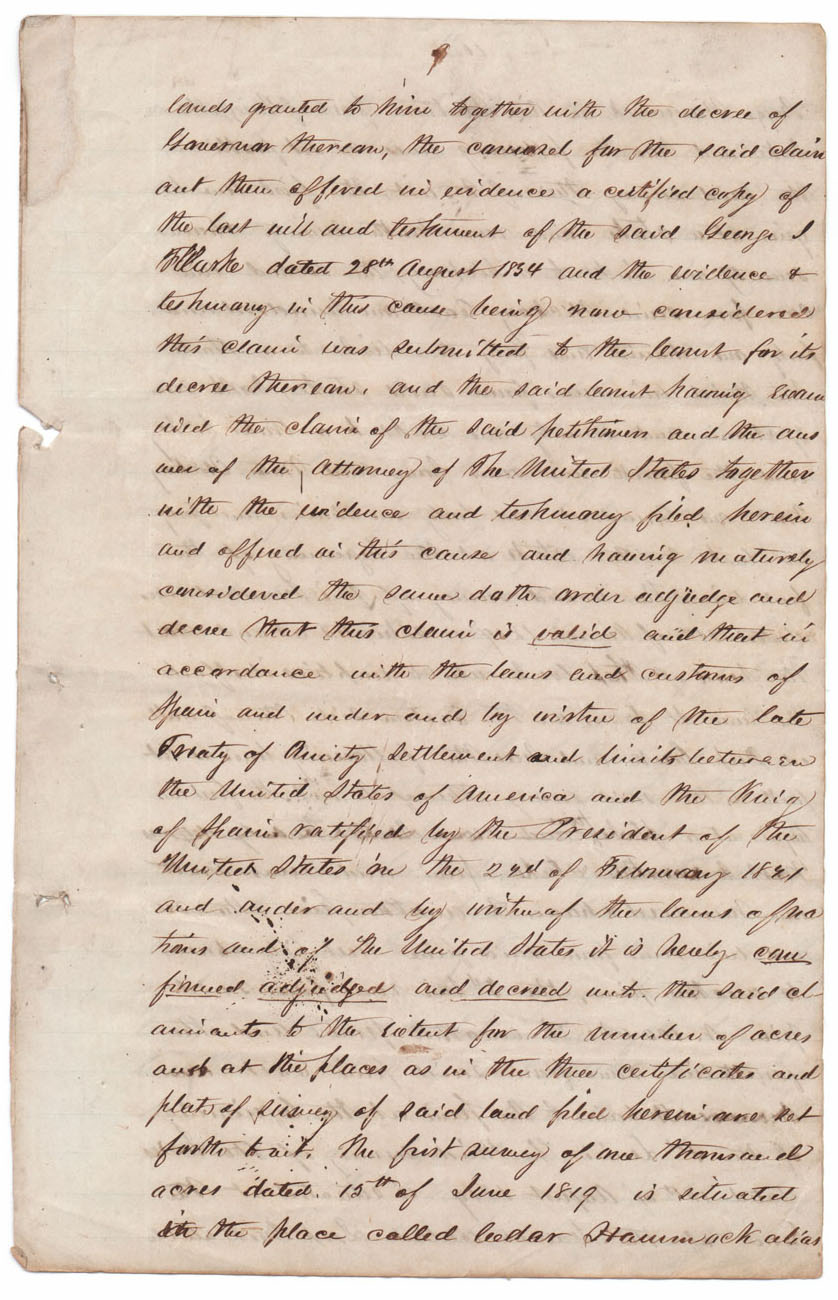 9
lands granted to him together with the decree of
Governor thereon, the counsel for the said claim
ant then offered in evidence a certified copy of
the last will and testament of the said George I
F Clarke dated 28th August 1834 and the evidence &
testimony in this cause being now considered
this claim was submitted to the Court for its
decree thereon. and the said Court having exam
ined the claim of the said petitioners and the ans
wer of the Attorney of The United States together
with the evidence and testimony filed herein
and offered in this cause and having maturely
considered the same doth order adjudge and
decree that this claim is valid and that in
accordance with the laws and customs of
Spain and under and by virtue of the late
Treaty of Amity settlement and limits between
the United States of America and the King
of Spain ratified by the President of the
United States on the 22d of February 1821
and under and by virtue of the laws of na
tions and of the United States it is hereby con
firmed adjudged and decreed unto the said cl
aimants to the extent for the number of acres
and at the places as in the three certificates and
plats of survey of said land filed herein are set
forth to wit. the first survey of one thousand
acres dated 15th of June 1819 is situated
in the place called Cedar Hammack alias